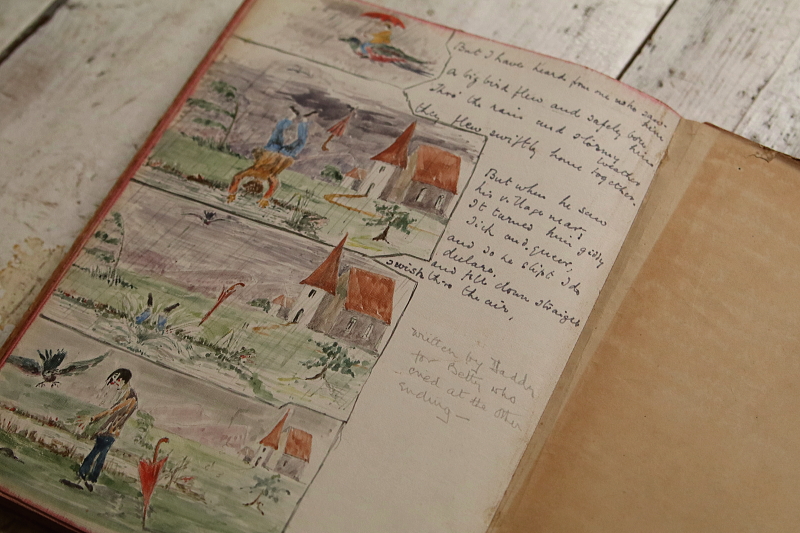 But I have heard from one who saw him
A big bird flew and safely bore him
Thro' the rain and stormy weather
they flew swiftly home together.
But when he saw
his village near,
It turned him giddy
Sick and queer,
and so he slipt I do
declare,
and fell down straight
swish thro the air,
written by Daddy
for Betty who
cried at the other
ending —